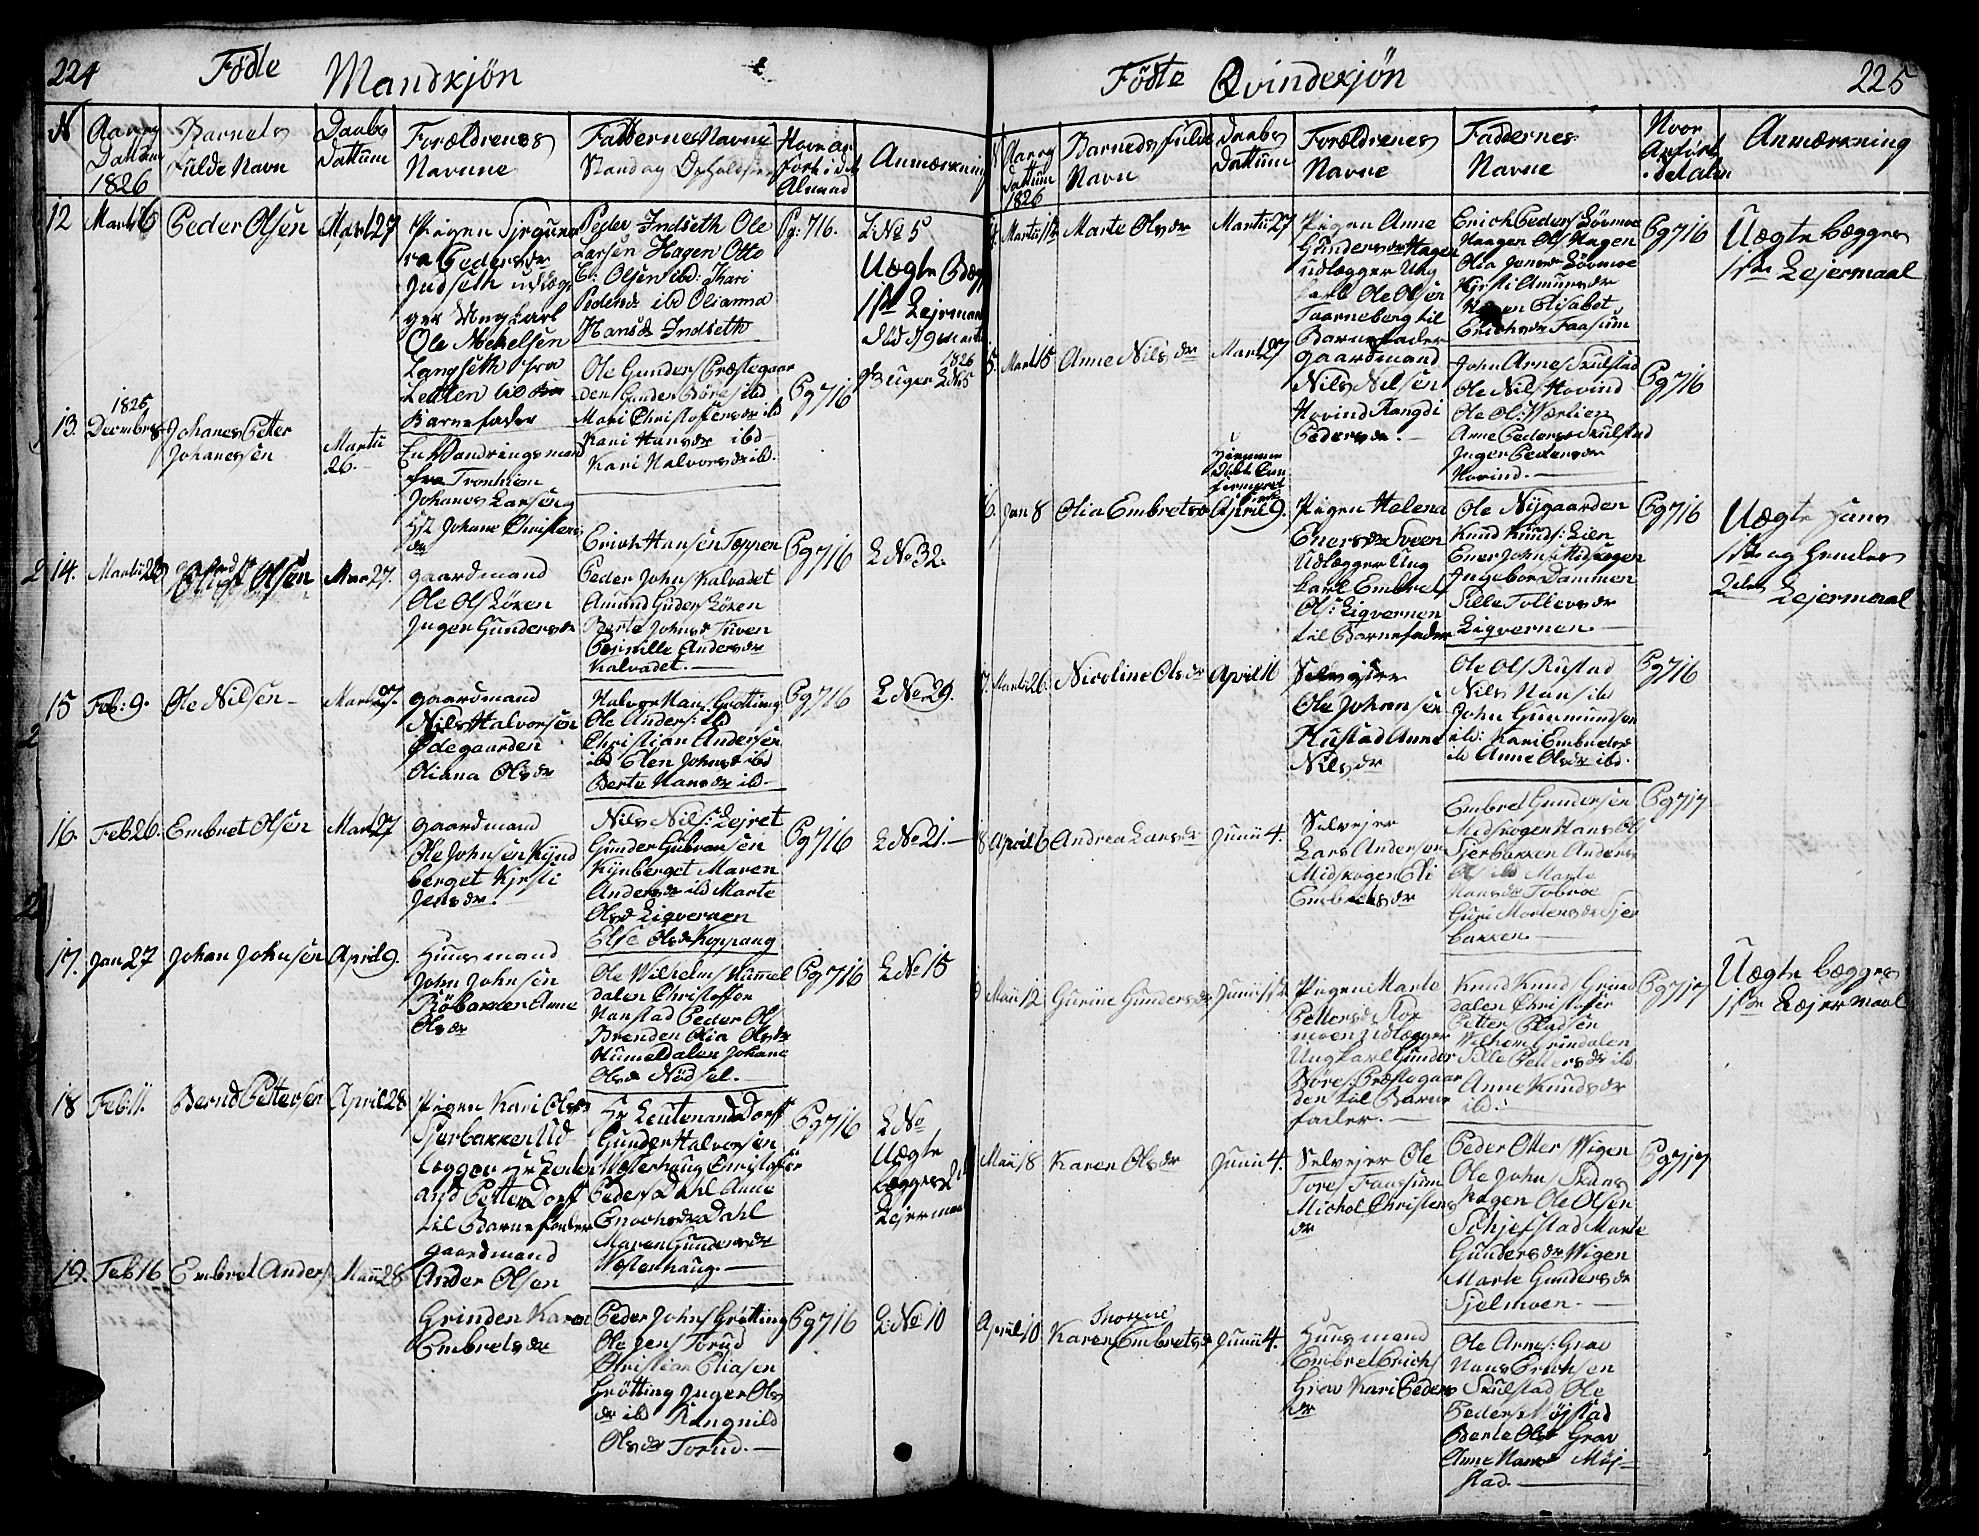 224
Födte Mandkjön
N
Aar og
Dattum
1826
Barnets
fulde Navn
Daabs
Dattum
Forældrenes
Navne
Faddernes Navne
Stand og
Anmærkning
12
Marti 6
Peder Olsen
Mart 27
Pigen
Peders dr
Indseth udlæg
ger Ungkarl
Ole Mekelsen
Langseth fra
Barnefader
Peder Indseth Ole
Larsen Hagen Otto
Olsen ibd: Kari
Peders dr ibd Olianna
Hans dr Indseth
Pg: 716.
L: No 5
Uægte
1ste Lejermaal
13.
1825
Decembr 8
Johanes Petter
Johanessen
Martii
26.
En Vandringsmand
fra Tronhiem
Johanes Larsen og
Johane Christens
dr
Ole Gunders Præstegaar
den Gunder Börre ibd
Mari Christofersdr ibd
Kari Hansdr ibd
Kari Halvorsdr ibd.
Pg 716
1826
L No 5
14.
Martii 20
Olsen
Mar 27.
gaardmand
Ole Ols Löken
Inger Gundersdr
Erich Hansen Toppen
Peder Johns Kalvadet
Amund Guders Löken
Berte Johnsdr Tuven
Pernille Andersdr
Kalvadet.
Pg 716
L No 32.
15
Feb: 9.
Ole Nilsen
Mart 27.
gaardmand
Nils Halvorsen
Ödegaarden
Oliana Olsdr
Halvor Hans Grötting
Ole Anders: ibd
Christian Andersen
ibd Elen Johnsdr ibd
Berte Hansdr ibd
Pg 716
L No 29.
16.
Feb 26.
Embret Olsen
Mart 27
gaardmand
Ole Johnsen Kynd
berget Kjrsti
Jensdr.
Nils Nils: Lejret
Gunder Gubransen
Kynberget Maren
Andersdr ibd Marte
Olsdr Ligvernen
Else Olsdr Koppang
Pg 716
L No 21.
17.
Jan 27
Johan Johnsen
April 9.
Huusmand
John Johnsen
Röbakken Anne
Olsdr
Ole Wilhelms Hummel
dalen Christoffer
Hanstad Peder Ols
Brenden Olia Olsdr
Humeldalen Johane
Olsdr Nödsel.
Pg 716
L No 15
18
Feb 11.
Bernd Pettersen
April 28
Pigen Kari Olsdr
Sjerbakken Ud
lægger Hr Leuten
and Petter Dorff
til Barnefader
Hr Leutenand Dorff
Gunder Halvorsen
Westerhaug Christofer
Peders Dahl Anne
Enochsdr Dahl
Maren Gundersdr
Westerhaug.
Pg 716
L No
Uægte
begges 2det
Lejermaal
19.
Feb 16
Embret Anders
Maii 28
gaardmand
Ander Olsen
Grinden Karen
Embretsdr
Peder Johns Grötting
Ole Jens Torud
Christian Eliasen
Grötting Inger Ols
dr ibd Rangnild
Olsdr Torud.
Pg 716
L: No 10
225
Födte Qvindekjön
Aar og
Dattum
1826
Barneds fulde
Navn
Daabs
Dattum
Forældrenes
Navne
Faddernes
Navne
Hvor
Anfört
Anmærkning
Marte Olsdr
Martii 27
Pigen Anne
Gundersdr Hagen
udlægger Ung
karl Ole Olsen
Taarneberg til
Barnefader
Erich Peders Lövmoe
Haagen Ols Hagen
Olia Jensdr Lövmoe
Kjrsti Amunsdr
Elisabet
Erichsdr Faasum
Pg 716
Uægte begges
1ste Lejermaal
5.
Mart 15
Anne Nilsdr
Mart 27
gaardmand
Nils Nilsen
Hovind Rangdi
Pedersdr.
John Arnes Skulstad
Ole Nils Hovind
Ole Ol: Værlien
Anne Peders Skulstad
Inger Pedersdr
Hovind.
Pg 716
6.
Jan 8
Olia Embretsdr
Hiemme
Döbt Con
firmeret
April 9.
Pigen Helena
Enersdr Sveen
Udlægger Ung
karl Embret
Ols: Ligvernen
til Barnefader
Ole Nygaarden
Knud Knuds: Lien
Ener Johns Midskogen
Ingebor Dammen
Sille Tollevsdr
Ligvernen.
Pg 716
Uægte Hans
1ste og Hendes
2det Lejermaal
7.
Marti 26.
Nicoline Olsdr
April 16
Selvejer
Ole Johansen
Rustad Anne
Nilsdr
Ole Ols Rustad
Nils Hans ibd
John Gunmundsen
ibd: Kari Embretsdr
ibd Anne Olsdr ibd.
Pg 716
8
April 6
Andrea Larsdr
Junii 4.
Selvejer
Lars Andersen
Midskogen Eli
Embretsdr
Embret Gundersen
Midskogen Hans Ols
Sjerbakken Anders
Ols ibd Marte
Hansdr Tobroe
Guri Mortensdr Sjer
bakken
Pg 717
Maii 12
Gurine Gundersdr
Pigen Marte
Pettersdr Stor
moen Udlægger
Ungkarl Gunder
Börres: Præstegaar
den til Barne
fader.
Knud Knuds Grind
dalen Christofer
Petter Pladsen
Wilhelm Grindalen
Sille Pettersdr ibd
Anne Knudsdr
ibd.
Pg 717
Uægte begges
1ste Lejermaal
Maii 8
Karen Olsdr
Junii 4.
Selvejer Ole
Tores Faassum
Michol Christens
dr
Peder Otter Wigen
Ole Johns Stens
hagen Ole Olsen
Schjefstad Marte
Gundersdr Wigen
Marte Gundersdr
Sjelmoen.
Pg 717
April 10
Karen Embretsdr
Junii 4.
Huusmand
Embret Erichs
Grav Kari Peders
dr
Ole Arnes: Grav
Hans Erichsen
Skulstad Ole
Peders Möjstad
Berte Olsdr Grav
Anne Hansdr Möj
stad.